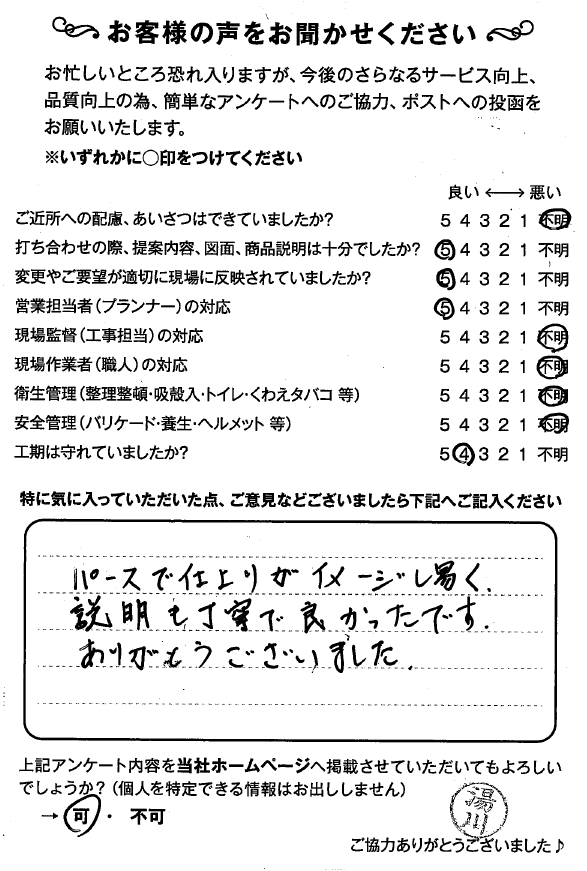 お客様の声をお聞かせください
お忙しいところ恐れ入りますが、今後のさらなるサービス向上、
品質向上の為、簡単なアンケートへのご協力、ポストへの投函を
お願いいたします。
※いずれかに○印をつけてください
良い ←→ 悪い
ご近所への配慮、あいさつはできていましたか? 5 4 3 2 1 不明
打ち合わせの際、提案内容、図面、商品説明は十分でしたか? 5 4 3 2 1 不明
変更やご要望が適切に現場に反映されていましたか? 5 4 3 2 1 不明
営業担当者(プランナー)の対応 5 4 3 2 1 不明
現場監督(工事担当)の対応 5 4 3 2 1 不明
現場作業者(職人)の対応 5 4 3 2 1 不明
衛生管理(整理整頓・吸殻入・トイレ・くわえタバコ 等) 5 4 3 2 1 不明
安全管理(バリケード・養生・ヘルメット 等) 5 4 3 2 1 不明
工期は守れていましたか? 5 4 3 2 1 不明
特に気に入っていただいた点、ご意見などございましたら下記へご記入ください
パースで仕上りがイメージし易く、
説明も丁寧で良かったです。
ありがとうございました。
上記アンケート内容を当社ホームページへ掲載させていただいてもよろしい
でしょうか?(個人を特定できる情報はお出ししません)
→ 可 ・ 不可
湯川
ご協力ありがとうございました♪